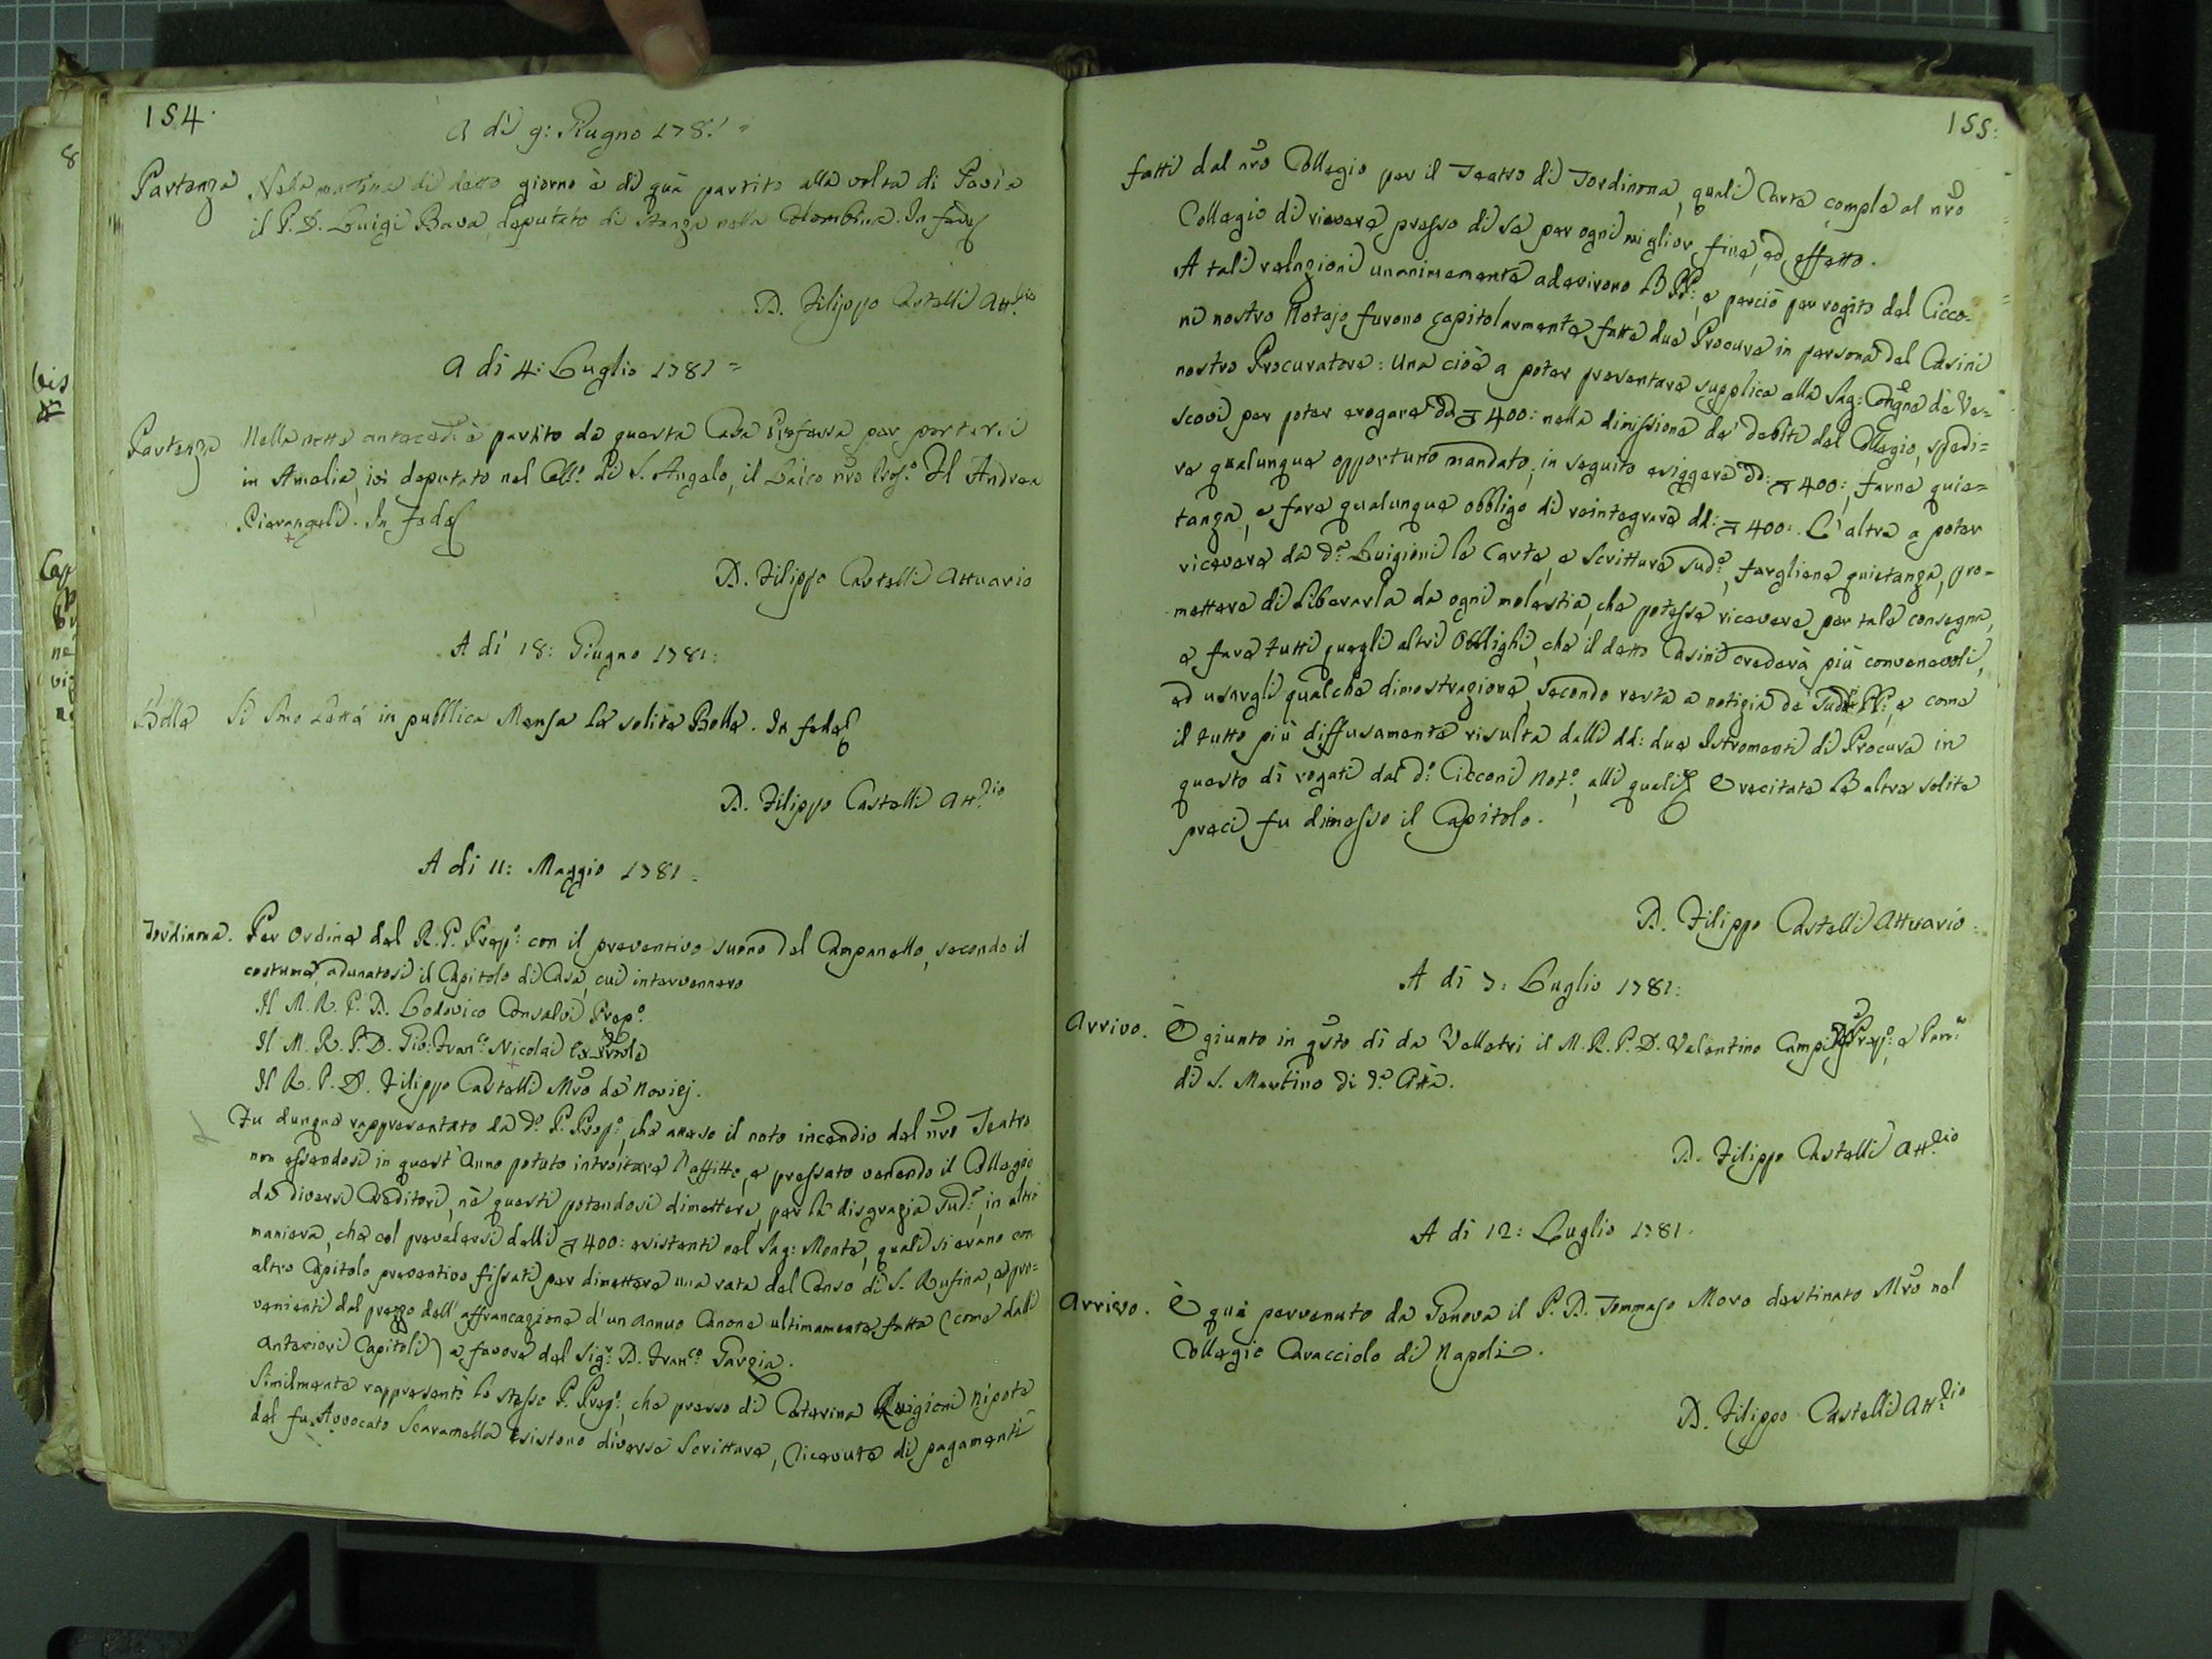 154.
A dì 9: Giugno 1781 =
Partenza Nella mattina di detto giorno è di quà partito alla volta di Pavia
il P. D. Luigi Bava, deputato di Stanza nella Colombina. In fede
D. Filippo Castelli Att.rio
A dì 4: Luglio 1781 =
Partenza Nella notte antecedte è partito da questa Casa Professa per portarsi
in Amelia, ivi deputato nel Coll.o di S. Angelo, il Laico nro Prof.o Fl Andrea
Pierangeli. In fede
D. Filippo Castelli Attuario
A dì 18: Giugno 1781:
Bolle Si sono lette in pubblica Mensa le solite Bolle. In fede
D. Filippo Castelli Att.rio
A di 11: Maggio 1781 =
Tordinona. Per Ordine del R. P. Prep.o con il preventivo suono del Campanello, secondo il
costume, adunatosi il Capitolo di Casa, cui intervennero
Il M. R. P. D. Lodovico Consalvi Prep.o
Il M. R. P. D. Gio: Fran.co Nicolai Ex
Il R. P. D. Filippo Castelli Mro de' Novizj.
Fu dunque rappresentato da d.o P. Prep.o, che atteso il noto incendio del nro Teatro
non essendosi in quest'Anno potuto introitare l'affitto, e pressato venendo il Collegio
da diversi Creditori, nè questi potendosi dimettere, per la disgrazia sud.a, in altra
maniera, che col prevalersi delli 400: esistenti nel Sag: Monte, quali si erano con
altro Capitolo preventivo fissati per dimettere una rata del Censo di S. Rufina, e pro=
venienti dal prezzo dell'affrancazione d'un annuo Canone ultimamente fatta (come dalli
anteriori Capitoli) a favore del Sig.r D. Fran.co Gargia.
Similmente rappresentò lo stesso P. Prep.o, che presso di Caterina Luigioni Nipote
del fu Avvocato Scaramella esistono diverse Scritture, Ricevute di pagamenti
155:
fatti dal nro Collegio per il Teatro di Tordinona, quali Carte comple al nro
Collegio di ricevere presso di se per ogni miglior fine, ed effetto.
A tali relazioni unanimemente aderirono li PP:, e perciò per rogito del Cicco=
ni nostro Notajo furono capitolarmente fatte due Procure in persona del Casini
nostro Procuratore: Una cioè a poter presentare supplica alla Sag: Congne de' Ve=
scovi per poter erogare dd: 400: nella dimissione de' debiti del Collegio, spedi=
re qualunque opportuno mandato, in seguito esiggere dd: 400:, farne quie=
tanza, e fare qualunque obbligo di reintegrare dd: 400:. L'altra a poter
ricevere da d.a Luigioni le Carte, e Scritture sud.e, fargliene quietanza, pro=
mettere di liberarla da ogni molestia, che potesse ricevere per tale consegna,
e fare tutti quegli altri Obblighi, che il detto Casini crederà più convenevoli,
ed usargli qualche dimostrazione, secondo resta a notizia de' sudi PP:, e come
il tutto più diffusamente risulta dalli dd: due Istromenti di Procura in
questo dì rogati dal d.o Cicconi Not.o, alli quali E recitate le altre solite
preci, fu dimesso il Capitolo.
D. Filippo Castelli Attuario.
A dì 7: Luglio 1781:
Arrivo. È giunto in qsto dì da Velletri il M. R. P. D. Valentino Prep.o, e
di S. Martino di d.a Città.
D. Filippo Castelli Att.rio
A dì 12: Luglio 1781.
Arrivo. È quà pervenuto da Genova il P. D. Tommaso Moro destinato Mro nel
Collegio Caracciolo di Napoli.
D. Filippo Castelli Att.rio